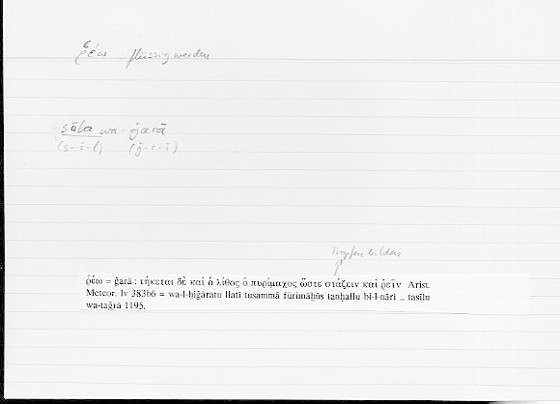 ῥέω flüssig werden
sāla wa-ǧarā
(s-ī-l) (ǧ-r-ī)
Tropfen bilden
ῥέω = ǧarā : τήκεται δὲ καὶ ὁ λίθος ὁ πυρίμαχος ὥστε στάζειν καὶ ῥεῖν Arist.
Meteor. Iv 383b6 = wa-l-ḥiǧāratu llatī tusammā fūrīmāḫūs tanḥallu bi-l-nāri ... tasīlu
wa-taǧrā 1195.